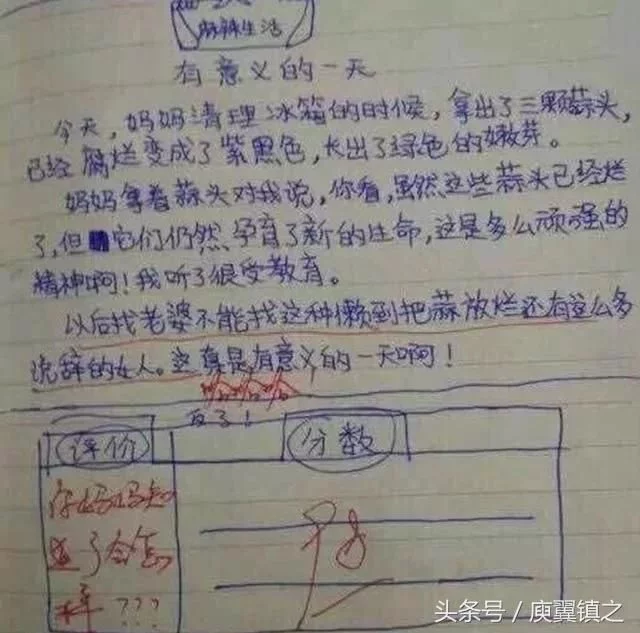 麻辣生活
有意义的一天
今天,妈妈清理冰箱的时候,拿出了三颗蒜头,
已经腐烂变成了紫黑色,长出了绿色的嫩芽。
妈妈拿着蒜头对我说,你看,虽然这些蒜头已经烂
了,但它们仍然孕育了新的生命,这是多么顽强的
精神啊!我听了很受教育。
以后找老婆不能找这种懒到把蒜放烂还有这么多
说辞的女人。这真是有意义的一天啊!
哈哈哈
反了!
评价
分数
你妈妈知
道了会怎
样???
头条号／庾翼镇之